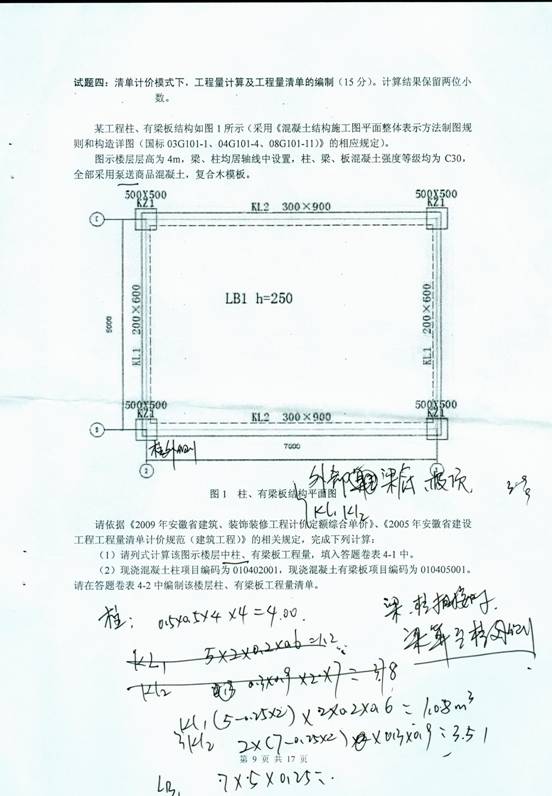 试题四：清单计价模式下，工程量计算及工程量清单的编制（15 分）。计算结果保留两位小
数。
某工程柱、有梁板结构如图 1 所示（采用《混凝土结构施工图平面整体表示方法制图规
则和构造详图（国标 03G101-1、04G101-4、08G101-11)》的相应规定）。
图示楼层层高为 4m，梁、柱均居轴线中设置，柱、梁、板混凝土强度等级均为 C30，
全部采用泵送商品混凝土，复合木模板。
500X500
KZ1
KL2 300×900
500X500
KZ1
C
5000
KL1 200×600
LB1 h=250
KL1 200×600
500X500
KZ1
KL2 300×900
500X500
KZ1
7000
图 1 柱、有梁板结构平面图
KL1 KL2
请依据《2009 年安徽省建筑、装饰装修工程计价定额综合单价》、《2005 年安徽省建设
工程工程量清单计价规范（建筑工程）》的相关规定，完成下列计算：
（1）请列式计算该图示楼层中柱、有梁板工程量，填入答题卷表 4-1 中。
（2）现浇混凝土柱项目编码为 010402001，现浇混凝土有梁板项目编码为 010405001。
请在答题卷表 4-2 中编制该楼层柱、有梁板工程量清单。
柱： 0.5×0.5×4×4=4.00
KL1 5×2×0.2×0.6=1.2
KL2 0.3×0.9×2×7=3.78
KL1 (5-0.25×2)×2×0.2×0.6=1.08m³
KL2 2×(7-0.25×2)×0.3×0.9=3.51
第 9 页 共 17 页
LB1 7×5×0.25=